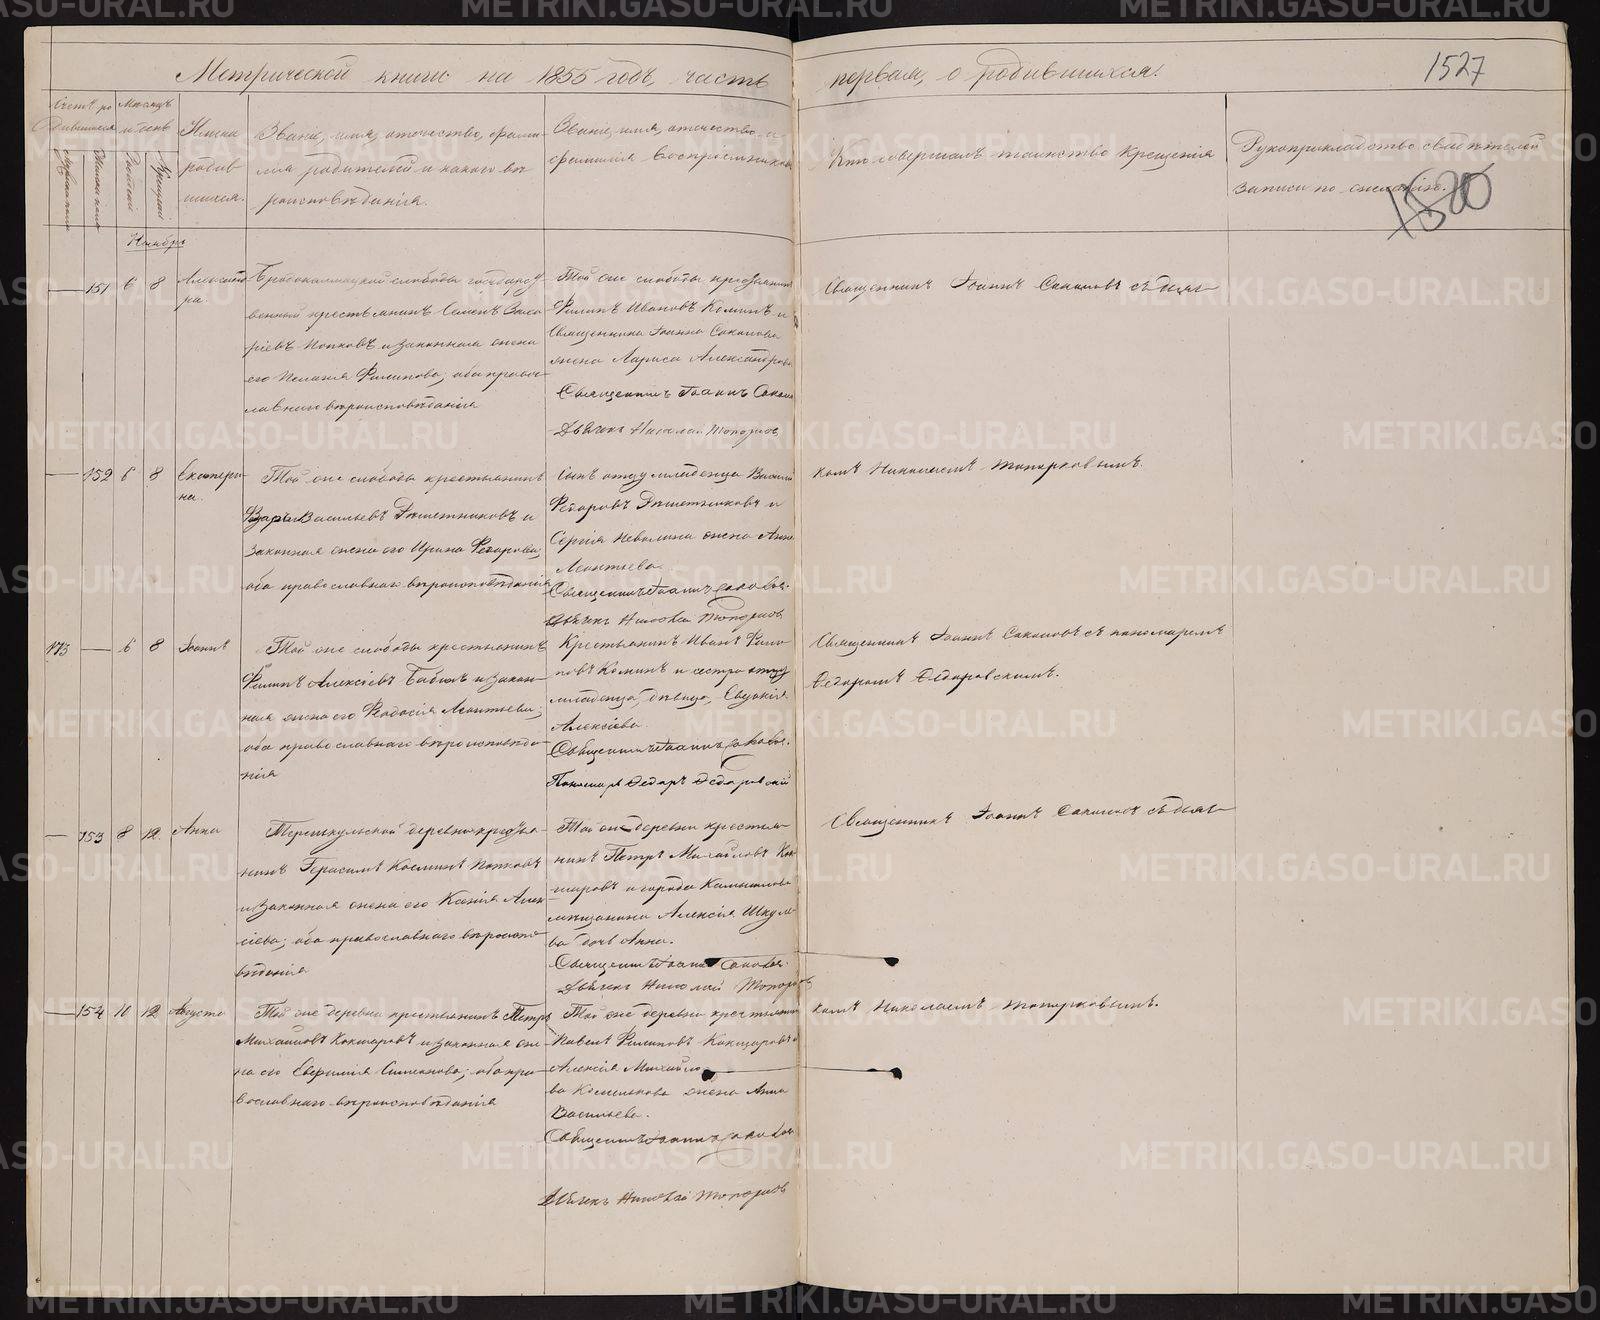 Метрической книги на 1855 годъ, часть первая, о родившихся.
1527
Счетъ ро
дившихся
Мужеска пола
Женска пола
Мѣсяцъ
и день
Рожденія
Крещенія
Имена
родив
шихся.
Званіе, имя, отечество, фами-
лія родителей и какого вѣ-
роисповѣданія.
Званіе, имя, отечество и
фамилія воспріемниковъ
Кто совершалъ таинство крещенія
Рукоприкладство свидѣтелей
записи по желанію.
1520
Ноябрь
151 6 8
Александ
ра.
Бродокалмацкой слободы государст
венный крестьянинъ Семенъ Заха
ріевъ Попковъ и законная жена
его Пелагія Филипова; оба право-
славнаго вѣроисповѣданія
Той же слободы крестьянинъ
Филипъ Ивановъ Коминъ и
Священника Іоанна Соколова
жена Лариса Александрова
Священникъ Іоаннъ Сокол
Дьячекъ Николай Топорков
Священникъ Іоаннъ Соколовъ съ дьяч-
152 6 8
Екатери-
на.
Той же слободы крестьянинъ
Васильевъ Рѣшетниковъ и
законная жена его Ирина Федорова;
оба православнаго вѣроисповѣданія
сынъ отцу младенца Василій
Федоровъ Рѣшетниковъ и
Сергія Неволина жена Анна
Леонтьева.
Священникъ Іоаннъ Соколов.
Дьячекъ Николай Топорков
комъ Николаемъ Топорковымъ.
173 6 8
Іоаннъ
Той же слободы крестьянинъ
Филипъ Алексіевъ Бабинъ и закон-
ная жена его Феодосія Леонтьева;
оба православнаго вѣроисповѣда-
нія
Крестьянинъ Иванъ Фили-
повъ Коминъ и сестра отцу
младенца, дѣвица, Евдокія
Алексіева.
Священникъ Іоаннъ Соколов.
Пономарь Федоръ Федоровскій
Священникъ Іоаннъ Соколовъ съ пономаремъ
Федоромъ Федоровскимъ.
153 8 12
Анна
Теренкульской деревни крестья-
нинъ Герасимъ Косминъ Попковъ
и законная жена его Ксенія Алек
сіева; оба православнаго вѣроиспо-
вѣданія
Той же деревни крестья-
нинъ Петръ Михайловъ Кок
шаровъ и города Камышлова
мѣщанина Алексія Шкуле-
ва дочь Анна.
Священникъ Іоаннъ Соколов.
Дьячекъ Николай Топорков
Священникъ Іоаннъ Соколовъ съ дьяч-
154 10 12
Августа
Той же деревни крестьянинъ Петръ
Михайловъ Кокшаровъ и законная же-
на его Евфимія Симеонова; оба пра-
вославнаго вѣроисповѣданія
Той же деревни крестьянин
Павелъ Филиповъ Кокшаровъ и
Алексія Михайло
ва жена Анна
Васильева.
Священникъ Іоаннъ Соколов
Дьячекъ Николай Топорков
комъ Николаемъ Топорковымъ.
METRIKI.GASO-URAL.RU